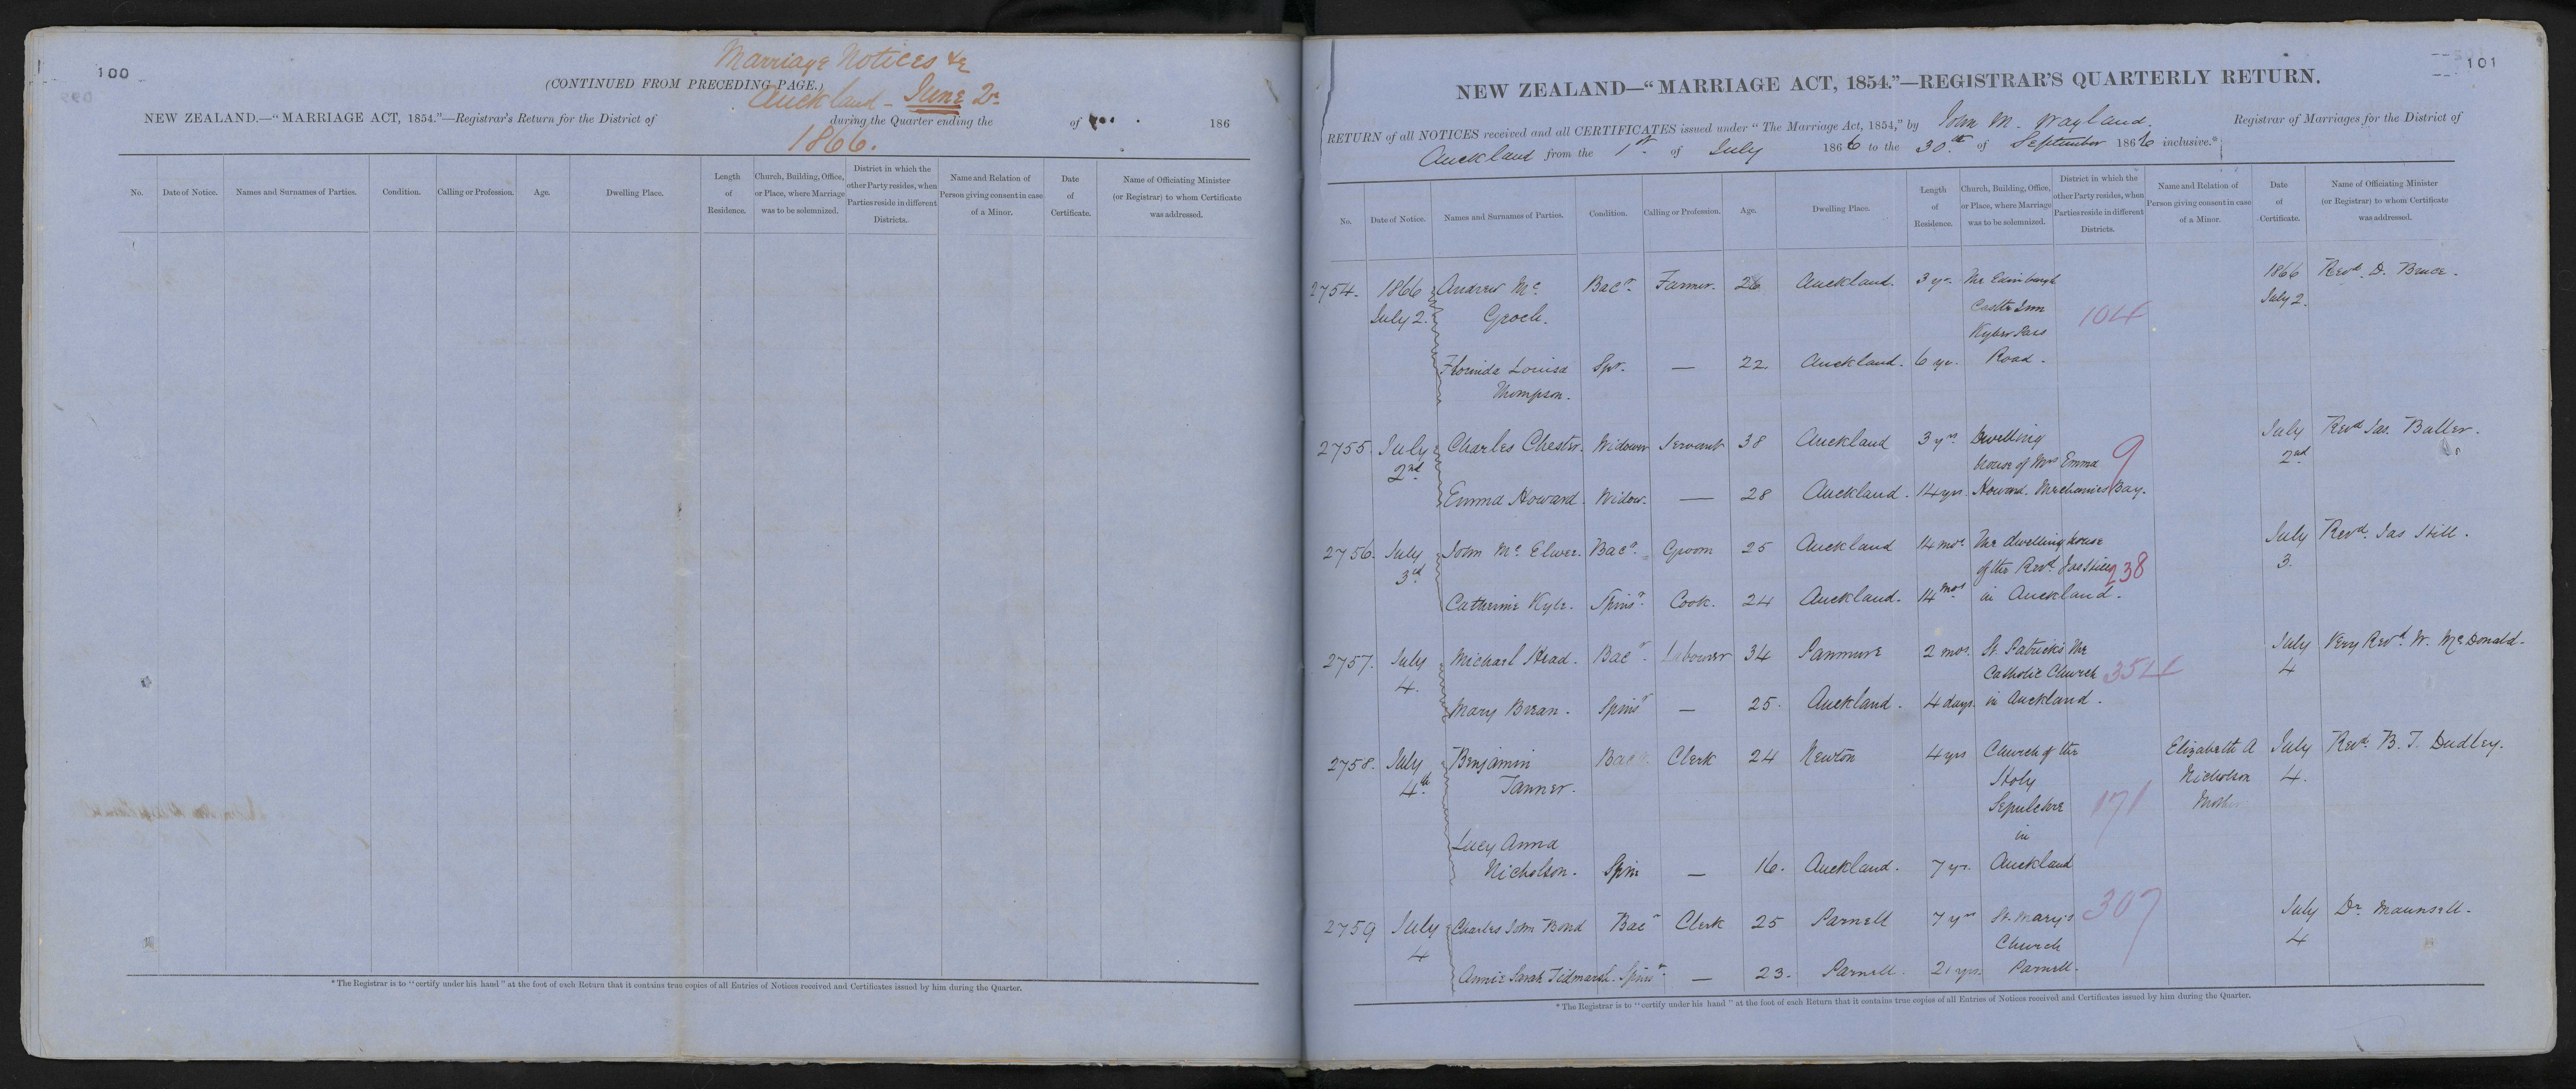 100
Marriage Notices &c
(CONTINUED FROM PRECEDING PAGE.)
Auckland - June Qr
NEW ZEALAND.—"MARRIAGE ACT, 1854."—Registrar's Return for the District of during the Quarter ending the of 186
1866.
No. Date of Notice. Names and Surnames of Parties. Condition. Calling or Profession. Age. Dwelling Place. Length of Residence. Church, Building, Office, or Place, where Marriage was to be solemnized. District in which the other Party resides, when Parties reside in different Districts. Name and Relation of Person giving consent in case of a Minor. Date of Certificate. Name of Officiating Minister (or Registrar) to whom Certificate was addressed.
*The Registrar is to "certify under his hand" at the foot of each Return that it contains true copies of all Entries of Notices received and Certificates issued by him during the Quarter.
101
NEW ZEALAND—"MARRIAGE ACT, 1854."—REGISTRAR'S QUARTERLY RETURN.
RETURN of all NOTICES received and all CERTIFICATES issued under "The Marriage Act, 1854," by John M. Wayland. Registrar of Marriages for the District of
Auckland from the 1st of July 1866 to the 30th of September 1866 inclusive.*
No. Date of Notice. Names and Surnames of Parties. Condition. Calling or Profession. Age. Dwelling Place. Length of Residence. Church, Building, Office, or Place, where Marriage was to be solemnized. District in which the other Party resides, when Parties reside in different Districts. Name and Relation of Person giving consent in case of a Minor. Date of Certificate. Name of Officiating Minister (or Registrar) to whom Certificate was addressed.
2754. 1866 Andrew Mc Bacr. Farmer. 26 Auckland. 3 yrs. The Edinburgh 1866 Revd. D. Bruce.
July 2. Groch. Castle Inn 104 July 2.
Kyber Pass
Florinda Louisa Spr. — 22 Auckland. 6 yrs. Road.
Thompson.
2755. July Charles Chester. Widower Servant 38 Auckland 3 yrs. Dwelling July Revd Jas. Buller.
2nd house of Mrs Emma 9 2nd
Emma Howard. Widow. — 28 Auckland. 14 yrs. Howard. Mechanics Bay.
2756. July John Mc. Elwee. Bacr. Groom 25 Auckland 14 mos. The dwelling house July Revd. Jas Hill.
3rd of the Revd. Jas Hill 238 3.
Catherine Kyle. Spinsr. Cook. 24 Auckland. 14 mos in Auckland.
2757. July Michael Head. Bacr. Labourer 34 Panmure 2 mos. St. Patricks the July Very Revd. W. McDonald.
4. Catholic Church 354 4
Mary Brean. Spinsr — 25. Auckland. 4 days. in Auckland.
2758. July Benjamin Bacr Clerk 24 Newton 4 yrs Church of the Elizabeth A July Revd. B. T. Dudley.
4th. Tanner. Holy Nicholson 4.
Sepulchre 171 Mother
in
Lucy Anna
Nicholson. Spin — 16. Auckland. 7 yrs. Auckland
2759 July Charles John Bond Bacr Clerk 25 Parnell 7 yrs St. Mary's 307 July Dr. Maunsell.
4 Church 4
Annie Sarah Tidmarsh. Spinsr. — 23. Parnell. 2 yrs. Parnell.
*The Registrar is to "certify under his hand" at the foot of each Return that it contains true copies of all Entries of Notices received and Certificates issued by him during the Quarter.